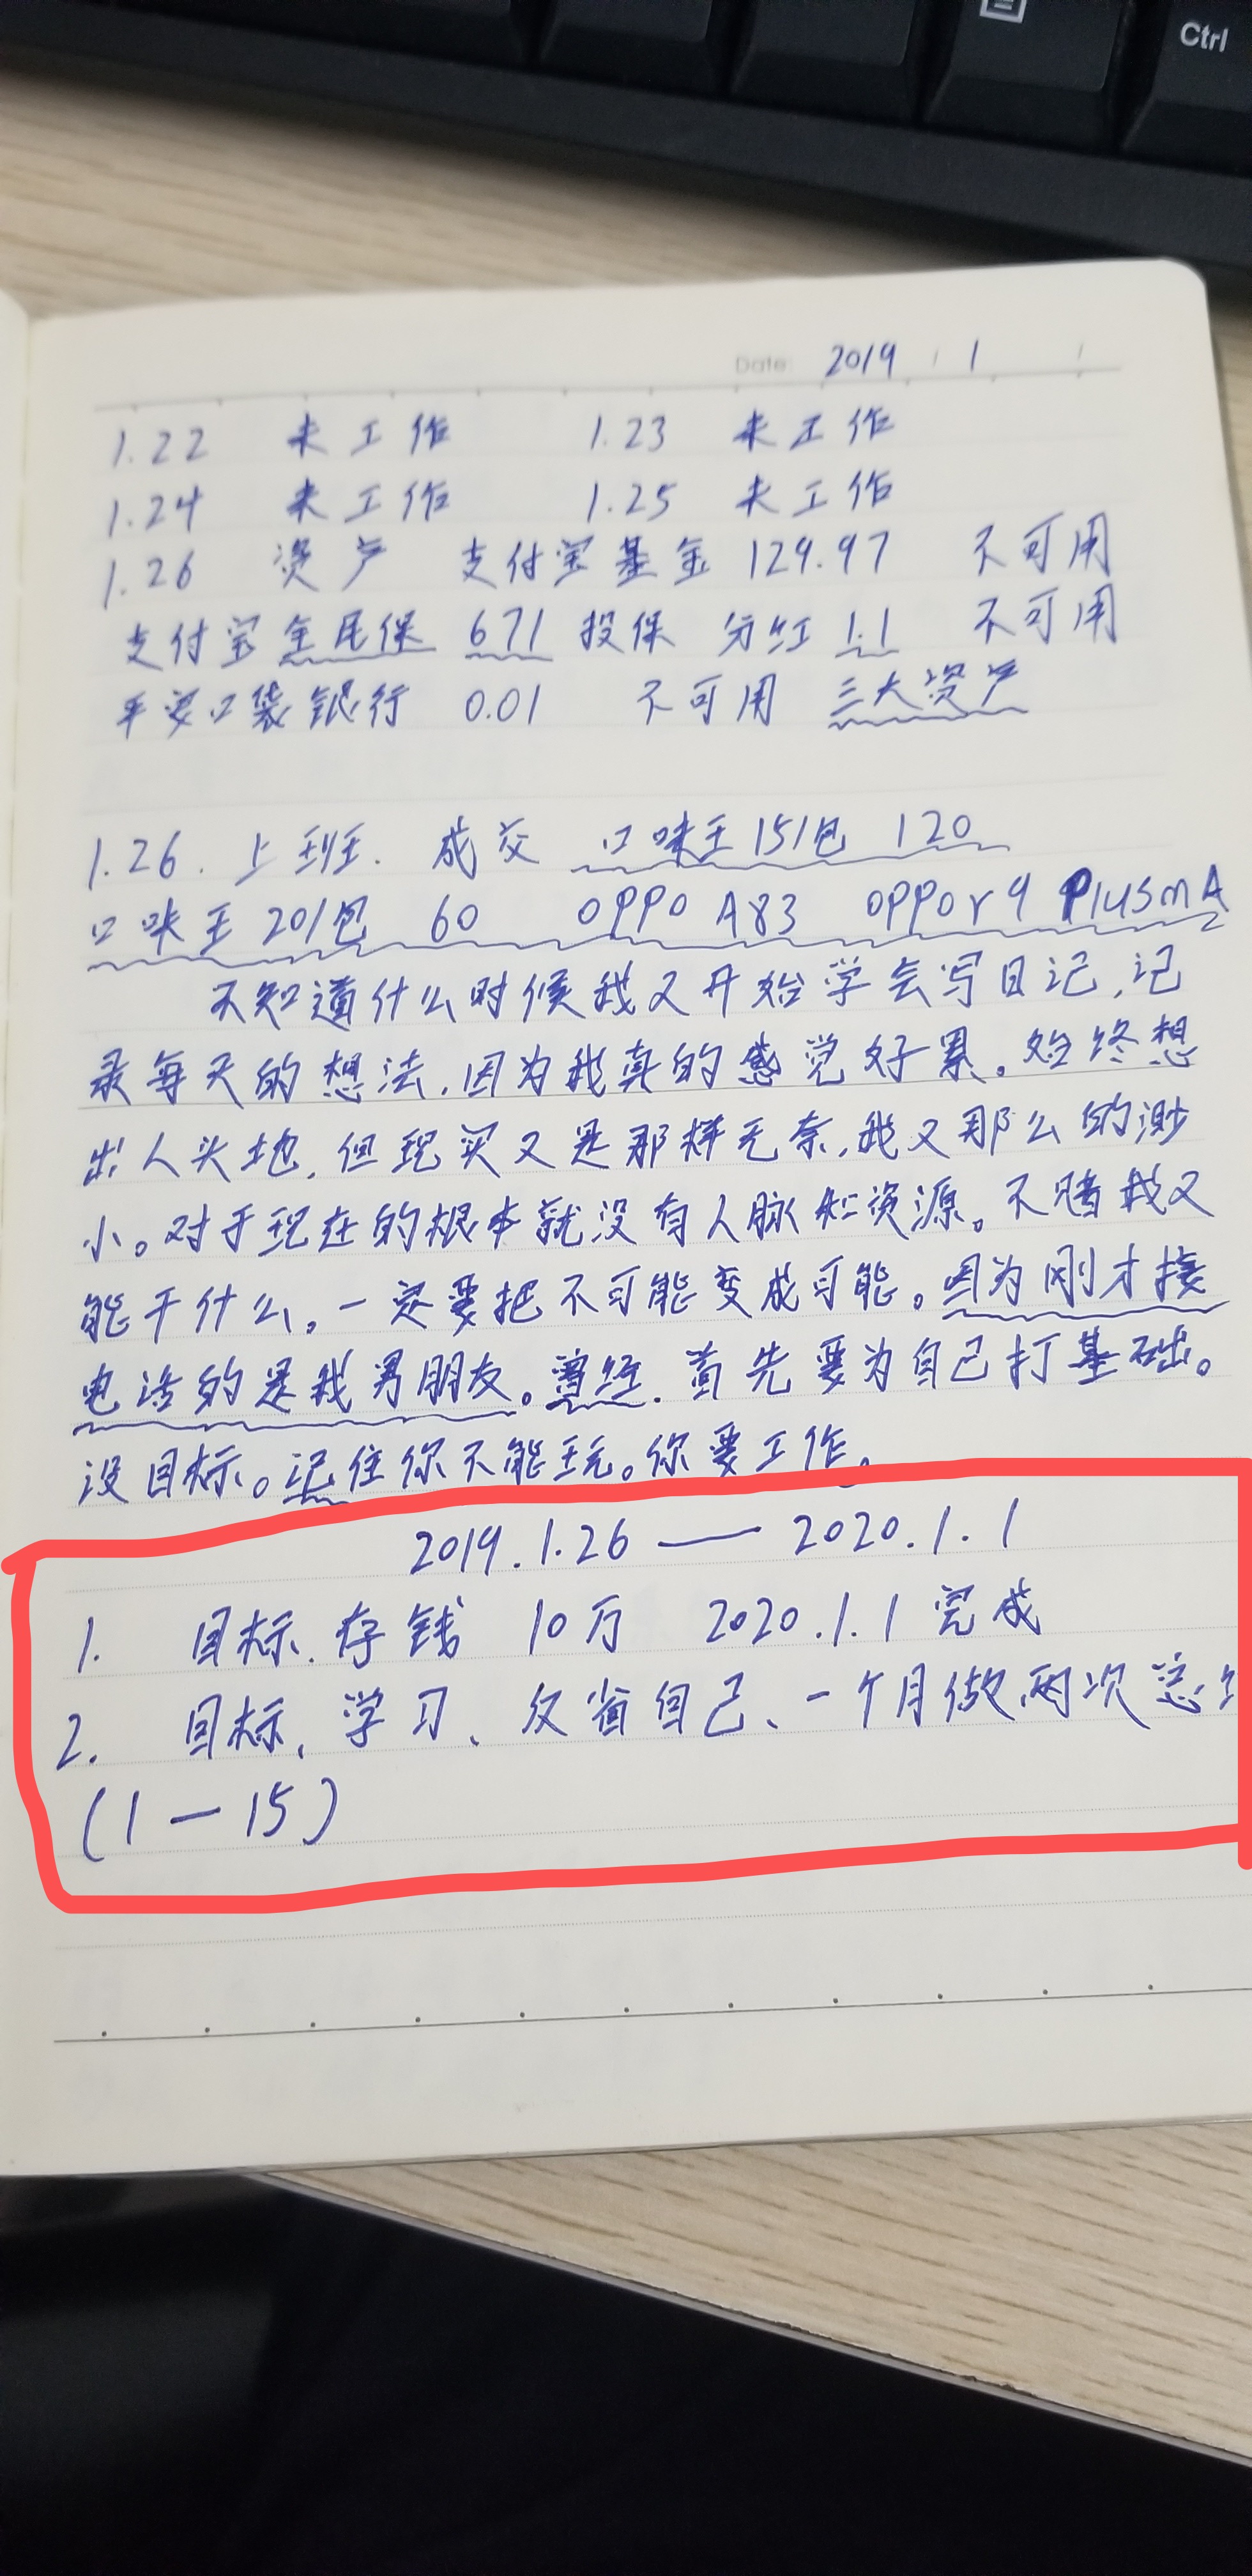 Ctrl
Date: 2019 / 1 /
1.22 未工作 1.23 未工作
1.24 未工作 1.25 未工作
1.26 资产 支付宝基金 129.97 不可用
支付宝全民保 671 投保 分红 1.1 不可用
平安口袋银行 0.01 不可用 三大资产
1.26. 上班. 成交 口味王151包 120
口味王201包 60 oppo A83 oppor9 PlusmA
不知道什么时候我又开始学会写日记,记
录每天的想法,因为我真的感觉好累。始终想
出人头地,但现实又是那样无奈,我又那么的渺
小。对于现在的根本就没有人脉和资源。不赌我又
能干什么。一定要把不可能变成可能。因为刚才接
电话的是我男朋友。曾经.首先要为自己打基础。
没目标。记住你不能玩。你要工作。
2019.1.26 — 2020.1.1
1. 目标.存钱 10万 2020.1.1完成
2. 目标、学习、反省自己、一个月做两次总
(1—15)